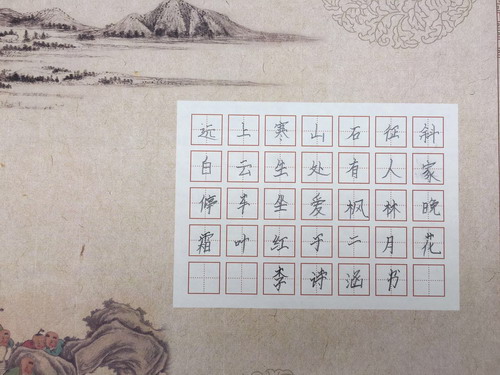 远上寒山石径斜
白云生处有人家
停车坐爱枫林晚
霜叶红于二月花
李诗涵书